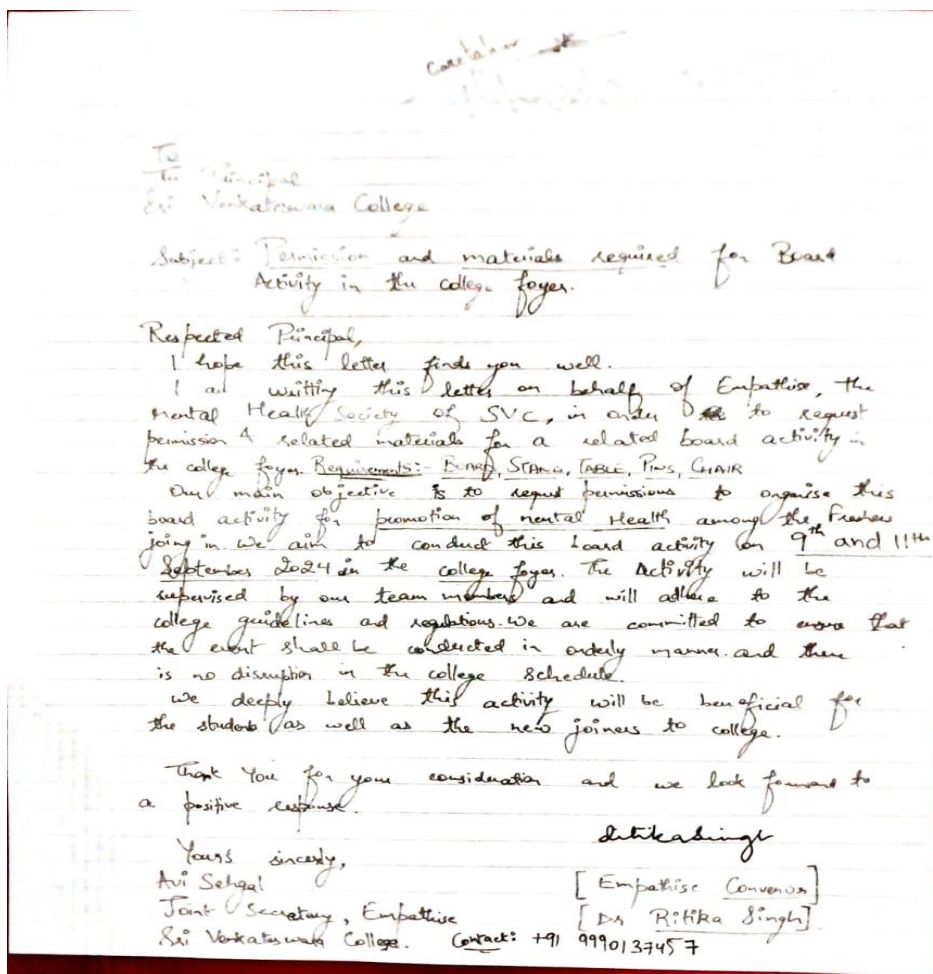 caretaker
To
The Principal
Sri Venkateswara College
Subject: Permission and materials required for Board
Activity in the college foyer.
Respected Principal,
I hope this letter finds you well.
I am writting this letter on behalf of Empathise, the
Mental Health Society of SVC, in order to request
permission & related materials for a related board activity in
the college foyer. Requirements:- BOARD, STAND, TABLE, PINS, CHAIR
Our main objective is to request permissions to organise this
board activity for promotion of mental Health among the Freshers
joining in. We aim to conduct this board activity on 9th and 11th
September 2024 in the college foyer. The Activity will be
supervised by our team members and will adhere to the
college guidelines and regulations. We are committed to ensure that
the event shall be conducted in orderly manner. and there
is no disruption in the college schedule.
We deeply believe this activity will be beneficial for
the students as well as the new joiners to college.
Thank You for your consideration and we look forward to
a positive response.
Ritika Singh
Yours sincerly,
Avi Sehgal
[Empathise Convenor]
Joint Secretary, Empathise
[Dr Ritika Singh]
Sri Venkateswara College. Contact: +91 9990137457